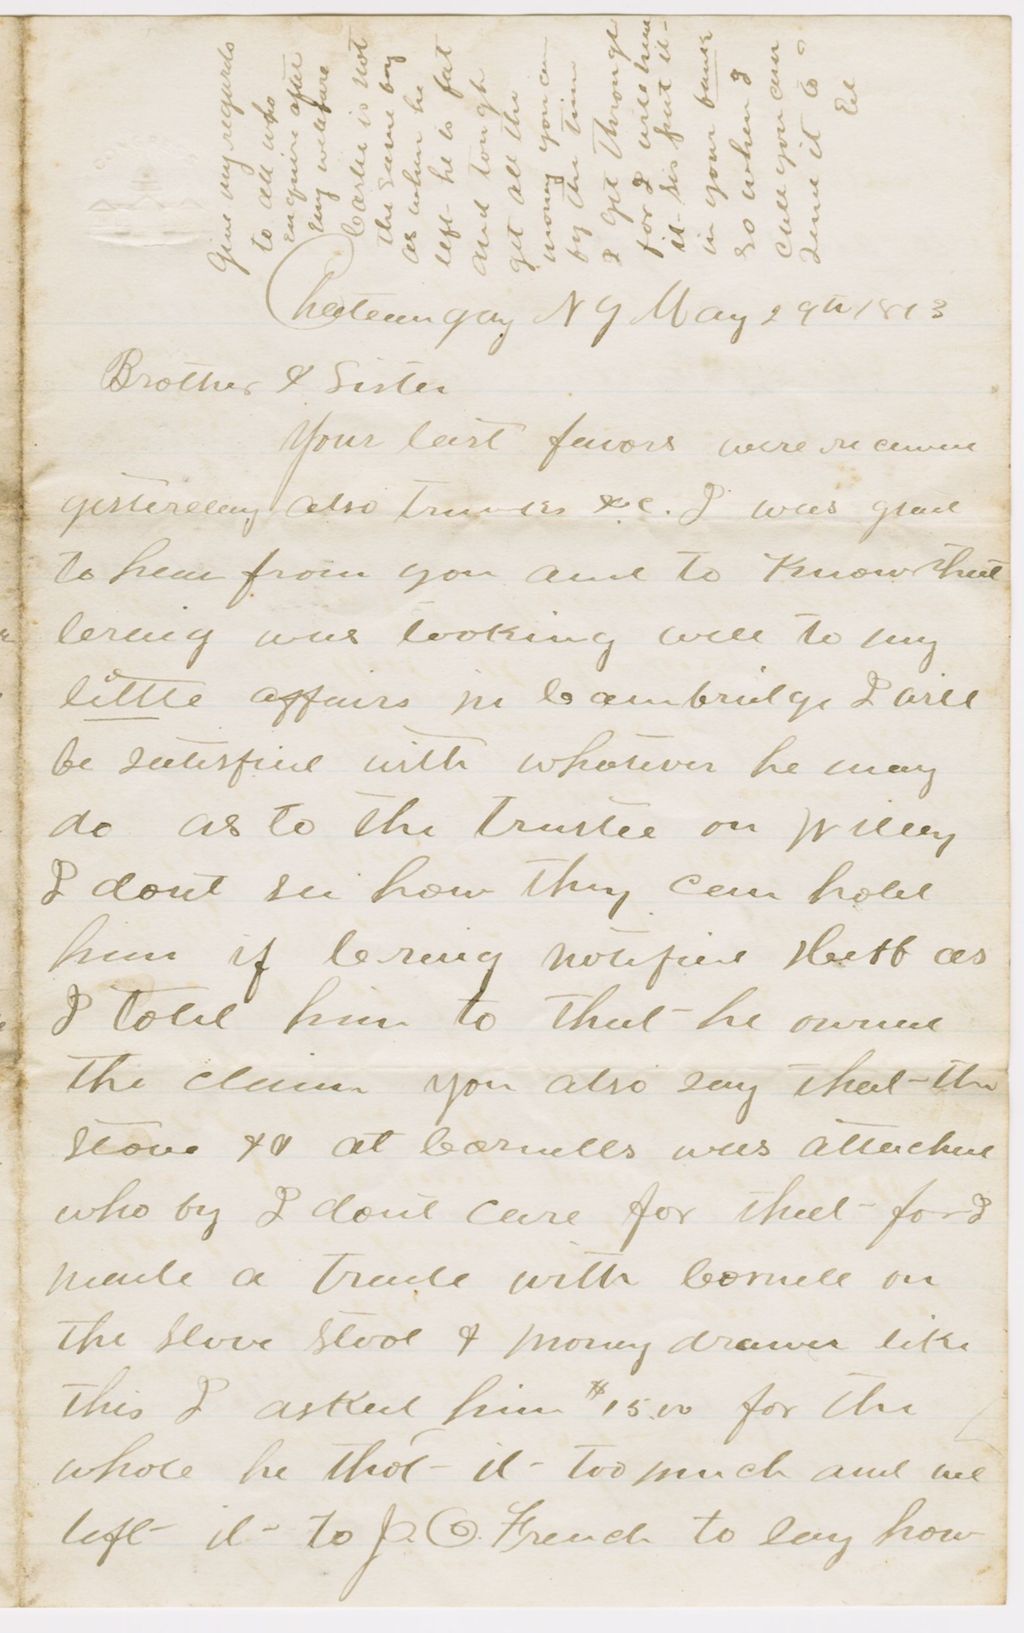 Give my regards
to all who
enquire after
my welfare
Carlie is not
the same boy
as when he
left - he is fat
and tough
get all the
money you can
by the time
I get through
for I will have
it - So put it -
in your bank
So when I
call you can
send it to
Ed
Chateaugay N Y May 29th 1873
Brother & Sister
Your last favors were received
yesterday also &c. I was glad
to hear from you and to Know that
was looking well to my
little affairs in Cambridge I will
be satisfied with whatever he may
do as to the trustee on Willey
I dont see how they can hold
him if notified as
I told him to that he owned
the claim you also say that the
Stove &c at Cornells was attached
who by I dont care for that - for I
made a trade with Cornell on
the Stove Stool & money drawer like
this I asked him $15.00 for the
whole he thot - it - too much and we
left - it - to J. C. French to say how